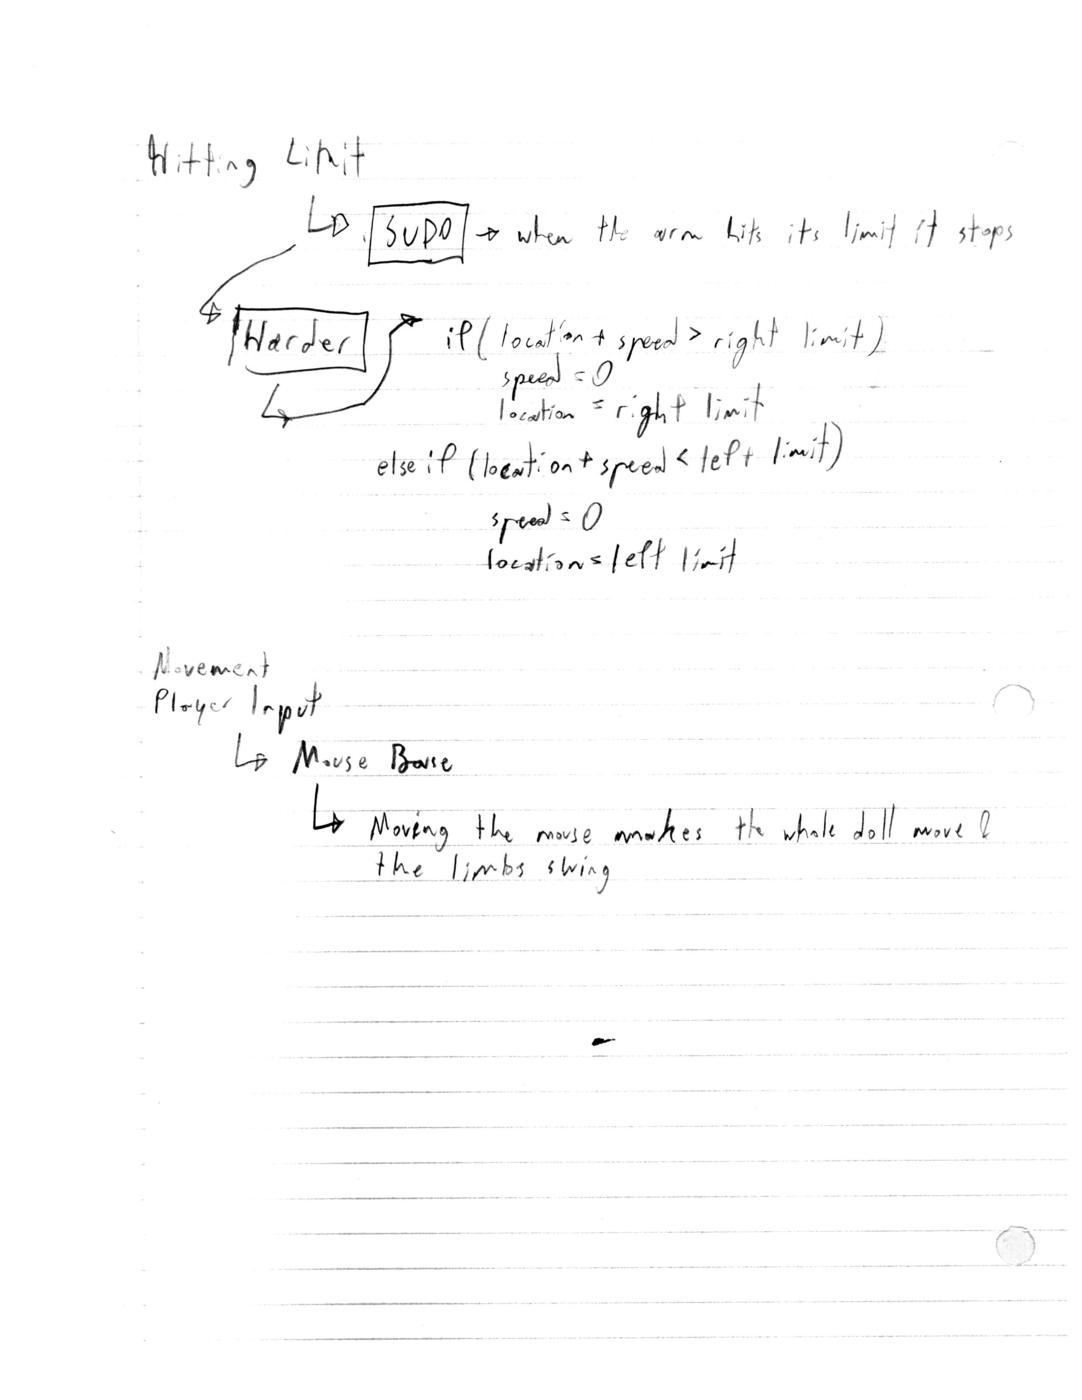 Hitting Limit
SUDO → when the arm hits its limit it stops
Harder
if (location + speed > right limit)
speed = 0
location = right limit
else if (location + speed < left limit)
speed = 0
location = left limit
Movement
Player Input
Mouse Base
Moving the mouse makes the whole doll move &
the limbs swing